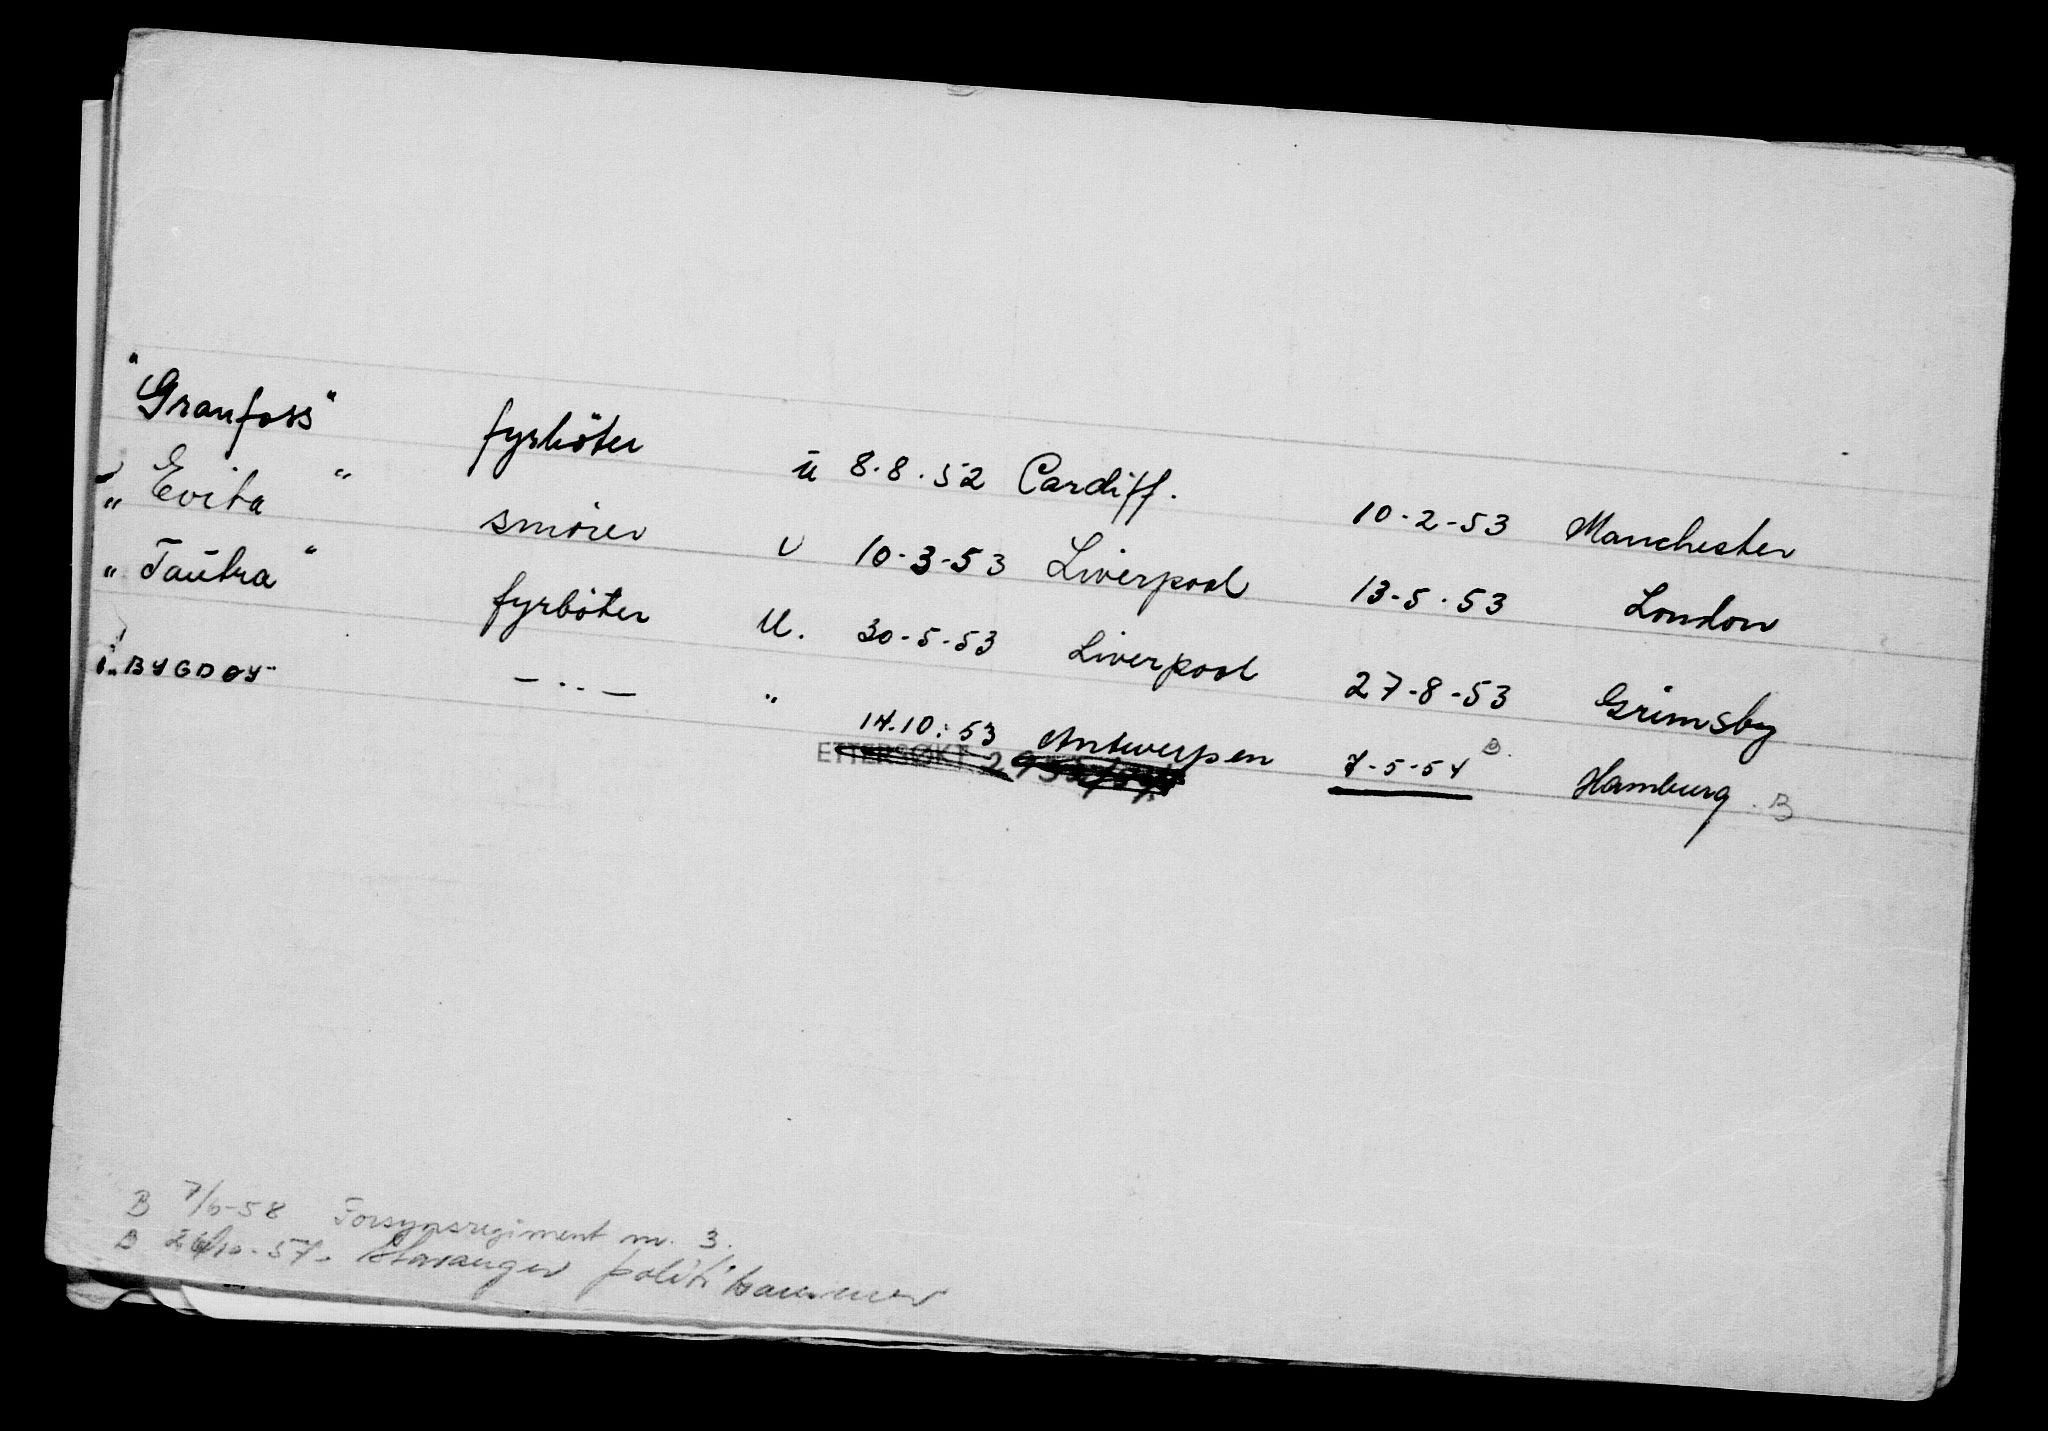 "Granfoss" fyrböter u 8.8.52 Cardiff. 10-2-53 Manchester
" Evita " smörer u 10-3-53 Liverpool 13-5-53 London
" Tautra " fyrböter u. 30-5-53 Liverpool 27-8-53 Grimsby
" BYGDØY — .. — " 14.10.53 Antwerpen 7-5-54 B. Hamburg. B
ETTERSØKT
B 7/6-58 Forsynsregiment nr. 3.
B 26/10-57. Stavanger politikammer